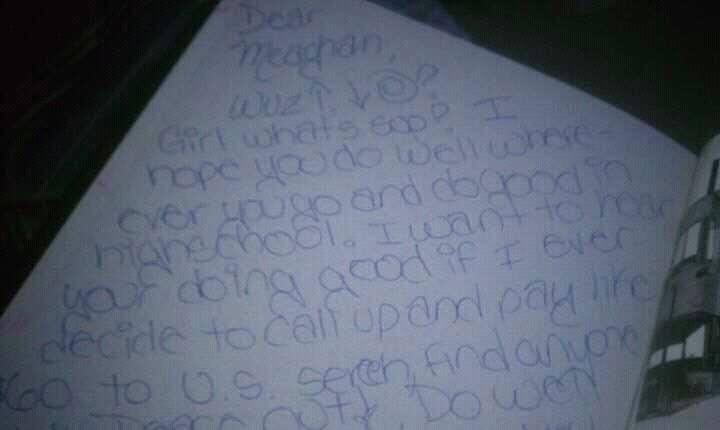 Dear
Meaghan,
Wuz ↑ ↓ ?
Girl what's soo? I
hope you do well where-
ever you go and do good in
highschool. I want to hear
your doing good if I ever
decide to call up and pay like
$60 to U.S. serch, find anyone
Peace out! Do well